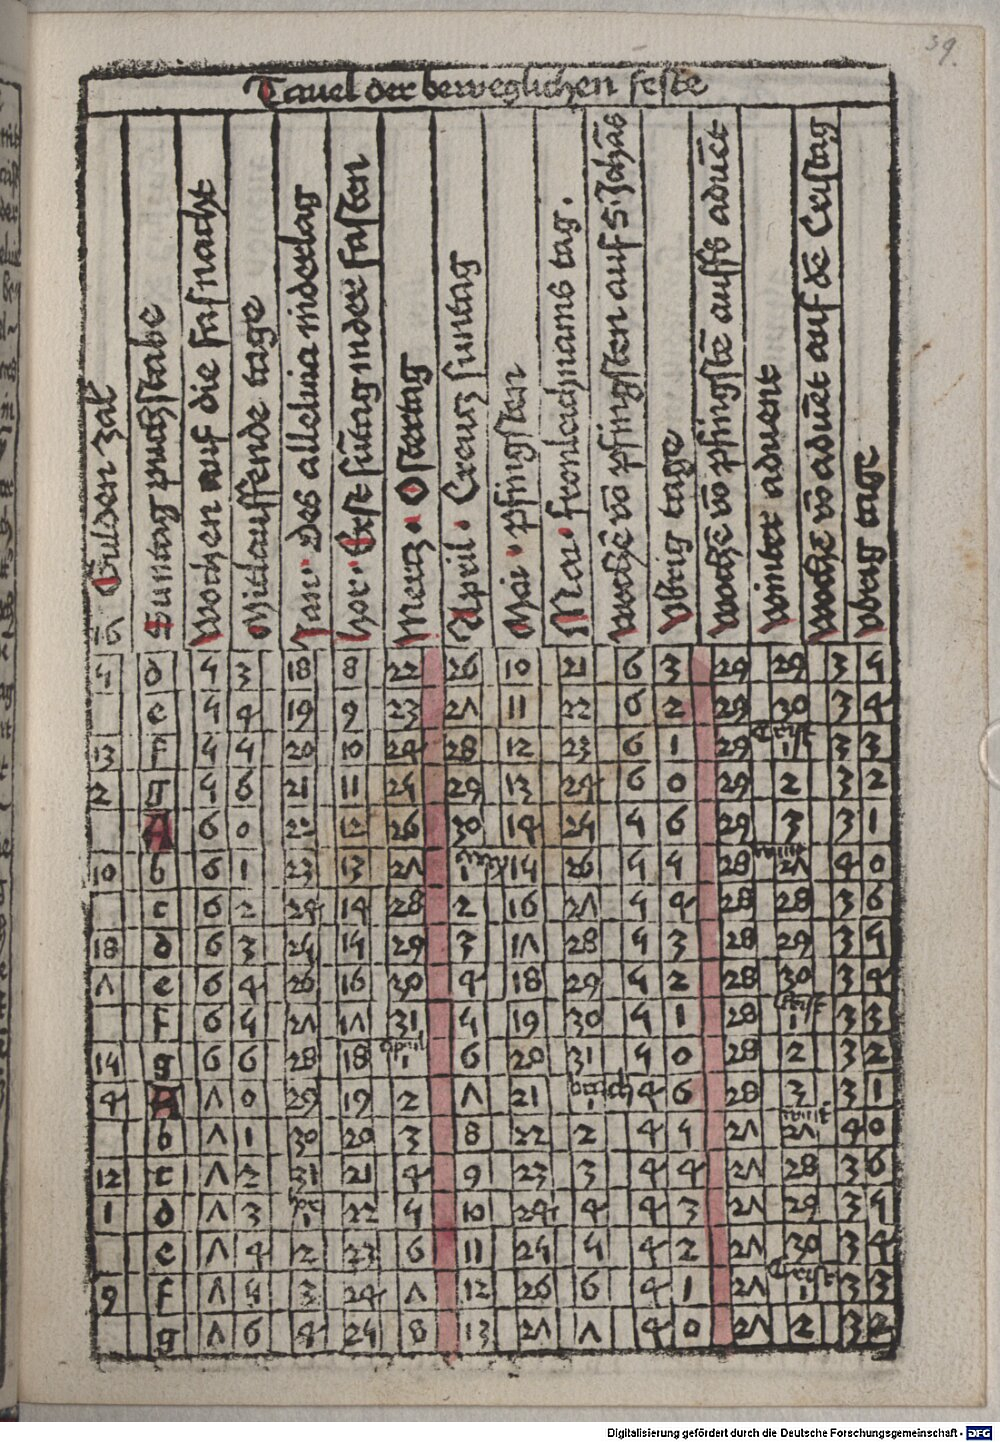 39.
Tauel der beweglichen feste
16 Gulden zal
Suntag puchstabe
Wochen auf die fasnacht
Mitlauffende tage
Jan · Des alleluia niderlag
Hor · Erste sūtag in der fasten
Mertz · Ostertag
April · Creutz suntag
Mai · Pfingsten
Mai · fronleichnams tag .
Wochē vō pfingsten auf S Johās
Vbrig tage
Wochē vō pfingstē auffs aduēt
Winter aduent
Wochē vō aduēt auf dē Cristag
Vbrig tage
5 d 5 3 18 8 22 26 10 21 6 3 29 29 3 5
e 5 4 19 9 23 27 11 22 6 2 29 30 3 4
13 f 5 5 20 10 24 28 12 23 6 1 29 Crist 1 3 3
2 g 5 6 21 11 25 29 13 24 6 0 29 2 3 2
A 6 0 22 12 26 30 14 25 5 6 29 3 3 1
10 b 6 1 23 13 27 1 15 26 5 5 28 27 4 0
c 6 2 24 14 28 2 16 27 5 4 28 28 3 6
18 d 6 3 25 15 29 3 17 28 5 3 28 29 3 5
7 e 6 4 26 16 30 4 18 29 5 2 28 30 3 4
f 6 5 27 17 31 5 19 30 5 1 28 Crist 1 3 3
15 g 6 6 28 18 april 1 6 20 31 5 0 28 2 3 2
4 A 7 0 29 19 2 7 21 brach 1 4 6 28 3 3 1
b 7 1 30 20 3 8 22 2 4 5 27 27 4 0
12 c 7 2 31 21 4 9 23 3 4 4 27 28 3 6
1 d 7 3 hor 1 22 5 10 24 4 4 3 27 29 3 5
e 7 4 2 23 6 11 25 5 4 2 27 30 3 4
9 f 7 5 3 24 7 12 26 6 4 1 27 Crist 1 3 3
g 7 6 4 25 8 13 27 7 4 0 27 2 3 2
Digitalisierung gefördert durch die Deutsche Forschungsgemeinschaft - DFG